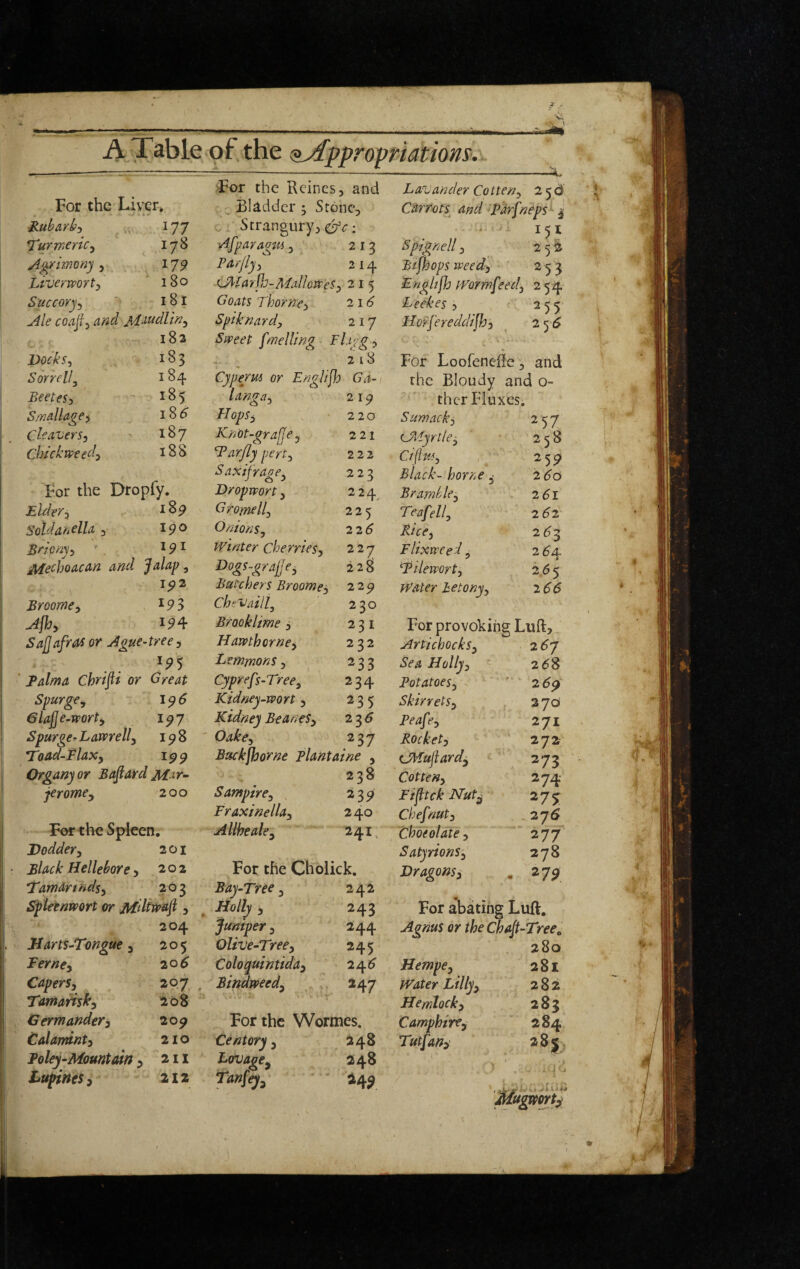 A Table of the Appropriations.
For the Liver.
Rubarb, 177
Turmeric, 178
Agrimony, 179
Liverwort, 180
Succory, 181
Ale coast, and Maudlin,
182
Docks, 183
Sorrell, 184
Beetes, 185
Smallage, 186
Cleavers, 187
Chickweed, 188
For the Dropsy.
Elder, 189
Soldanella, 190
Briony, 191
Mechoacan and Jalap,
192
Broome, 193
Ash, 194
Sassafras or Ague-tree,
195
Palma Christi or Great
Spurge, 196
Glasse-wort, 197
Spurge-Lawrell, 198
Toad-Flax, 199
Organy or Bastard Mar-
jerome, 200
For the Spleen.
Dodder, 201
Black Hellebore, 202
Tamarinds, 203
Spleenwort or Miltwast,
204
Harts-Tongue, 205
Ferne, 206
Capers, 207
Tamarisk, 208
Germander, 209
Calamint, 210
Poley-Mountain, 211
Lupines, 212
For the Reines, and
Bladder; Stone,
Strangury, &c:
Asparagus, 213
Parsly, 214
Marsh-Mallowes, 215
Goats Thorne, 216
Spiknard, 217
Sweet smelling Flagg,
218
Cyperus or English Ga-
langa, 219
Hops, 220
Knot-grasse, 221
Parsly pert, 222
Saxifrage, 223
Dropwort, 224
Gromell, 225
Onions, 226
Winter Cherries, 227
Dogs-grasse, 228
Butchers Broome, 229
Chevaill, 230
Brooklime, 231
Hawthorne, 232
Lemmons, 233
Cypress-Tree, 234
Kidney-wort, 235
Kidney Beanes, 236
Oake, 237
Buckshorne Plantaine,
238
Sampire, 239
Fraxinella, 240
Allheale, 241
For the Cholick.
Bay-Tree, 242
Holly, 243
Juniper, 244
Olive-Tree, 245
Coloquintida, 246
Bindweed, 247
For the Wormes.
Centory, 248
Lovage, 248
Tansey, 249
Lavander Cotten, 250
Carrots and Parsneps,
151
Spignell, 252
Bishops weed, 253
English Wormseed, 254
Leekes, 255
Horsereddish, 256
For Loosenesse, and
the Bloudy and o-
ther Fluxes.
Sumack, 257
Myrtle, 258
Cistus, 259
Black-horne, 260
Bramble, 261
Teasell, 262
Rice, 263
Flixweed, 264
Pilewort, 265
Water Betony, 266
For provoking Lust,
Artichocks, 267
Sea Holly, 268
Potatoes, 269
Skirrets, 270
Pease, 271
Rocket, 272
Mustard, 273
Cotten, 274
Fistick Nut, 275
Chesnut, 276
Choeolate, 277
Satyrions, 278
Dragons, 279
For abating Lust.
Agnus or the Chast-Tree,
280
Hempe, 281
Water Lilly, 282
Hemlock, 283
Camphire, 284
Tutsan, 285
Mugwort,